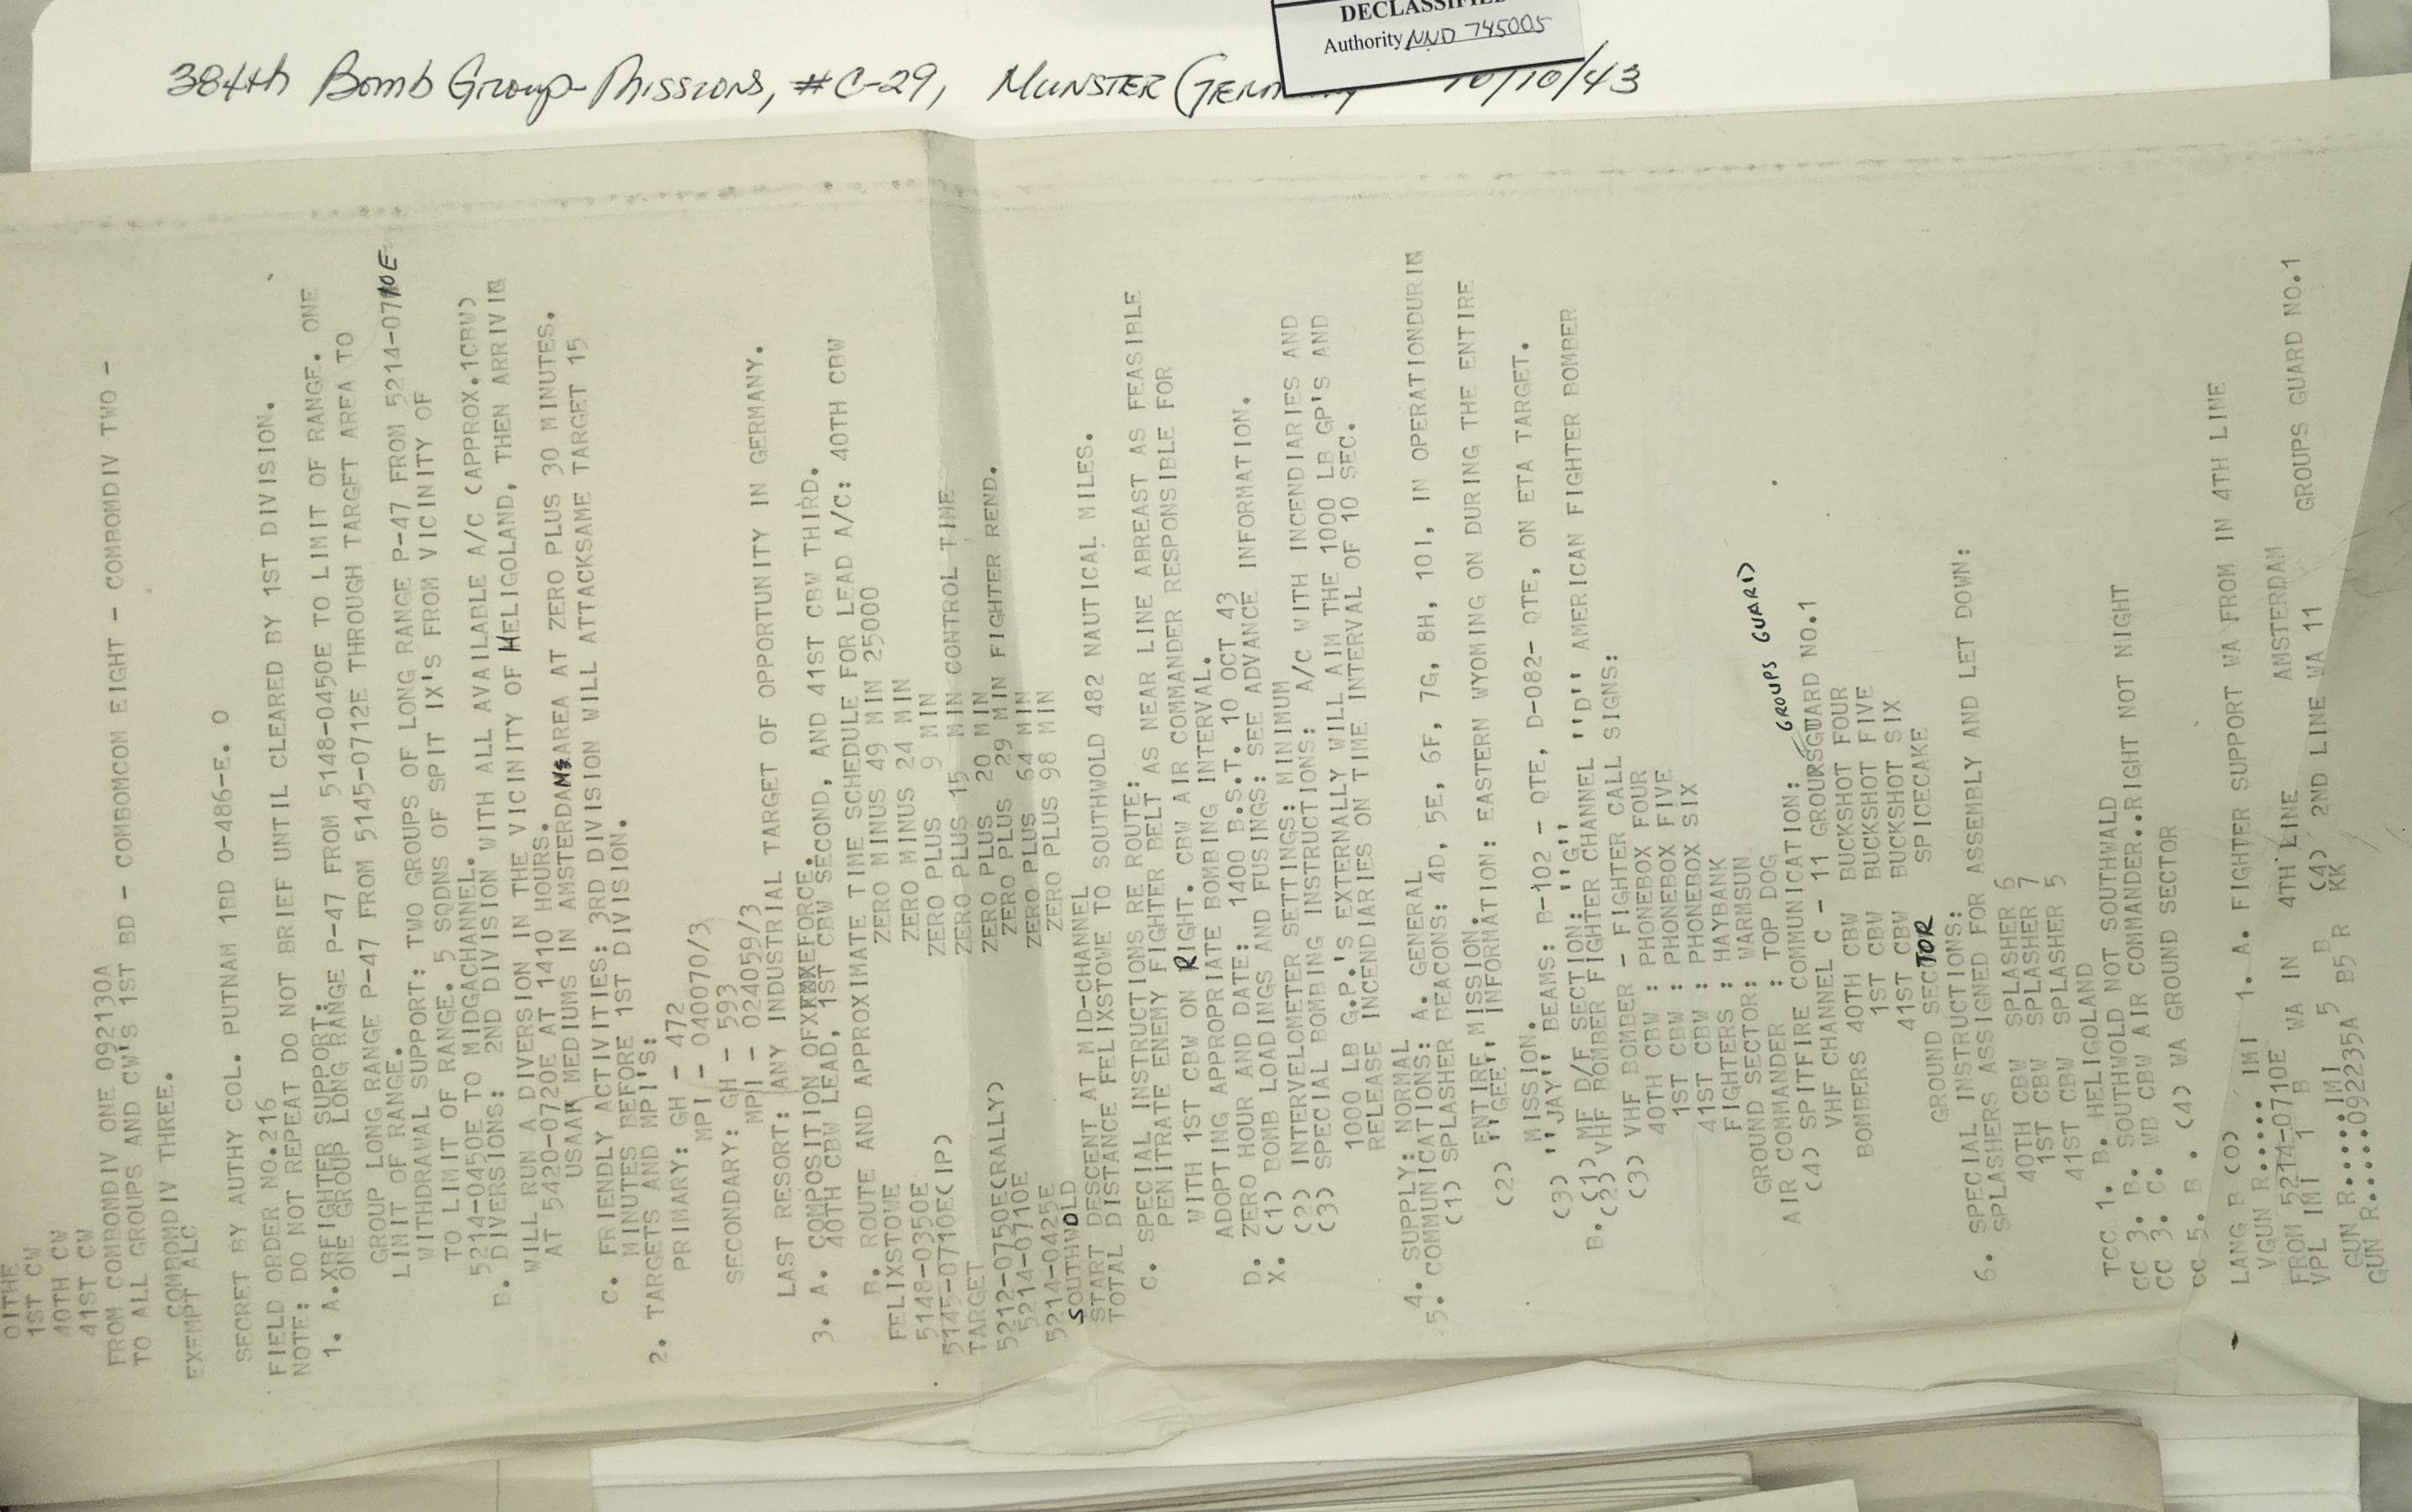 DECLASSIFIED
Authority NND 745005
384th Bomb Group-Missions, #C-29, MUNSTER 10/10/43
1ST CW
40TH CW
41ST CW
FROM COMBOMDIV ONE 092130A
TO ALL GROUPS AND CW'S 1ST BD - COMBOMCOM EIGHT - COMBOMDIV TWO -
COMBOMDIV THREE.
EXEMPT ALC
SECRET BY AUTHY COL. PUTNAM 1BD O-486-E. O
FIELD ORDER NO.216
NOTE: DO NOT REPEAT DO NOT BRIEF UNTIL CLEARED BY 1ST DIVISION.
1. A.XRFIGHTER SUPPORT:
ONE GROUP LONG RANGE P-47 FROM 5148-0450E TO LIMIT OF RANGE. ONE
GROUP LONG RANGE P-47 FROM 5145-0712E THROUGH TARGET AREA TO
LIMIT OF RANGE.
WITHDRAWAL SUPPORT: TWO GROUPS OF LONG RANGE P-47 FROM 5214-0710E
TO LIMIT OF RANGE. 5 SQDNS OF SPIT IX'S FROM VICINITY OF
5214-0450E TO MIDGACHANNEL.
B. DIVERSIONS: 2ND DIVISION WITH ALL AVAILABLE A/C (APPROX.1CBW)
WILL RUN A DIVERSION IN THE VICINITY OF HELIGOLAND, THEN ARRIVIG
AT 5420-0720E AT 1410 HOURS.
USAAF MEDIUMS IN AMSTERDAM AREA AT ZERO PLUS 30 MINUTES.
C. FRIENDLY ACTIVITIES: 3RD DIVISION WILL ATTACKSAME TARGET 15
MINUTES BEFORE 1ST DIVISION.
2. TARGETS AND MPI'S:
PRIMARY: GH - 472
MPI - 040070/3
SECONDARY: GH - 593
MPI - 024059/3
LAST RESORT: ANY INDUSTRIAL TARGET OF OPPORTUNITY IN GERMANY.
3. A. COMPOSITION OFXFNXEFORCE.
40TH CBW LEAD, 1ST CBW SECOND, AND 41ST CBW THIRD.
B. ROUTE AND APPROXIMATE TIME SCHEDULE FOR LEAD A/C: 40TH CBW
FELIXSTOWE ZERO MINUS 49 MIN 25000
5148-0350E ZERO MINUS 24 MIN
5145-0710E(IP) ZERO PLUS 9 MIN
TARGET ZERO PLUS 15 MIN CONTROL TIME
5212-0750E(RALLY) ZERO PLUS 20 MIN
5214-0710E ZERO PLUS 29 MIN FIGHTER REND.
5214-0425E ZERO PLUS 64 MIN
SOUTHWOLD ZERO PLUS 98 MIN
START DESCENT AT MID-CHANNEL
TOTAL DISTANCE FELIXSTOWE TO SOUTHWOLD 482 NAUTICAL MILES.
C. SPECIAL INSTRUCTIONS RE ROUTE:
PENITRATE ENEMY FIGHTER BELT AS NEAR LINE ABREAST AS FEASIBLE
WITH 1ST CBW ON RIGHT. CBW AIR COMMANDER RESPONSIBLE FOR
ADOPTING APPROPRIATE BOMBING INTERVAL.
D. ZERO HOUR AND DATE: 1400 B.S.T. 10 OCT 43
X. (1) BOMB LOADINGS AND FUSINGS: SEE ADVANCE INFORMATION.
(2) INTERVELOMETER SETTINGS: MINIMUM
(3) SPECIAL BOMBING INSTRUCTIONS: A/C WITH INCENDIARIES AND
1000 LB G.P.'S EXTERNALLY WILL AIM THE 1000 LB GP'S AND
RELEASE INCENDIARIES ON TIME INTERVAL OF 10 SEC.
4. SUPPLY: NORMAL
5. COMMUNICATIONS: A. GENERAL
(1) SPLASHER BEACONS: 4D, 5E, 6F, 7G, 8H, 10I, IN OPERATIONDURIG
ENTIRE MISSION.
(2) ''GEE'' INFORMATION: EASTERN WYOMING ON DURING THE ENTIRE
MISSION.
(3) ''JAY'' BEAMS: B-102 - QTE, D-082- QTE, ON ETA TARGET.
B. (1) MF D/F SECTION: ''G''
(2) VHF BOMBER FIGHTER CHANNEL ''D'' AMERICAN FIGHTER BOMBER
(3) VHF BOMBER - FIGHTER CALL SIGNS:
40TH CBW : PHONEBOX FOUR
1ST CBW : PHONEBOX FIVE
41ST CBW : PHONEBOX SIX
FIGHTERS : HAYBANK
GROUND SECTOR: WARMSUN
AIR COMMANDER : TOP DOG
(4) SPITFIRE COMMUNICATION: GROUPS GUARD
VHF CHANNEL C - 11 GROURSGUARD NO.1
BOMBERS 40TH CBW BUCKSHOT FOUR
1ST CBW BUCKSHOT FIVE
41ST CBW BUCKSHOT SIX
GROUND SECTOR SPICECAKE
6. SPECIAL INSTRUCTIONS:
SPLASHERS ASSIGNED FOR ASSEMBLY AND LET DOWN:
40TH CBW SPLASHER 6
1ST CBW SPLASHER 7
41ST CBW SPLASHER 5
TCC 1. B. HELIGOLAND
CC 3. B. SOUTHWOLD NOT SOUTHWALD
CC 3. C. WB CBW AIR COMMANDER..RIGHT NOT NIGHT
CC 5. B . (4) WA GROUND SECTOR
LANG B (O) IMI 1. A. FIGHTER SUPPORT WA FROM IN 4TH LINE
VGUN R.....
FROM 5214-0710E WA IN 4TH LINE AMSTERDAM
VPL IMI 1 B B (4) 2ND LINE WA 11 GROUPS GUARD NO.1
5 KK
GUN R.....IMI B5 R
GUN R.....092235A